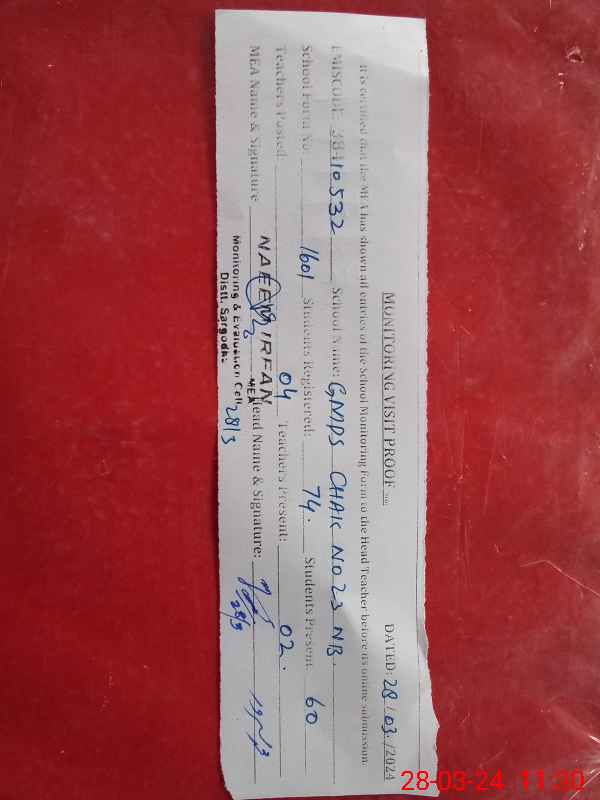 MONITORING VISIT PROOF DATED: 28/03/2024
It is certified that the MEA has shown all entries of the School Monitoring Form to the Head Teacher before its online submission.
EMISCODE: 38410532 School Name: GMPS CHAK NO 23 NB.
School Form No: 1601 Students Registered: 74. Students Present 60
Teachers Posted: 04 Teachers Present: 02.
MEA Name & Signature NAEEM IRFAN Head Name & Signature:
MEA
Monitoring & Evaluation Cell
Distt. Sargodha
28/3
28/3
28-03-24 11:30